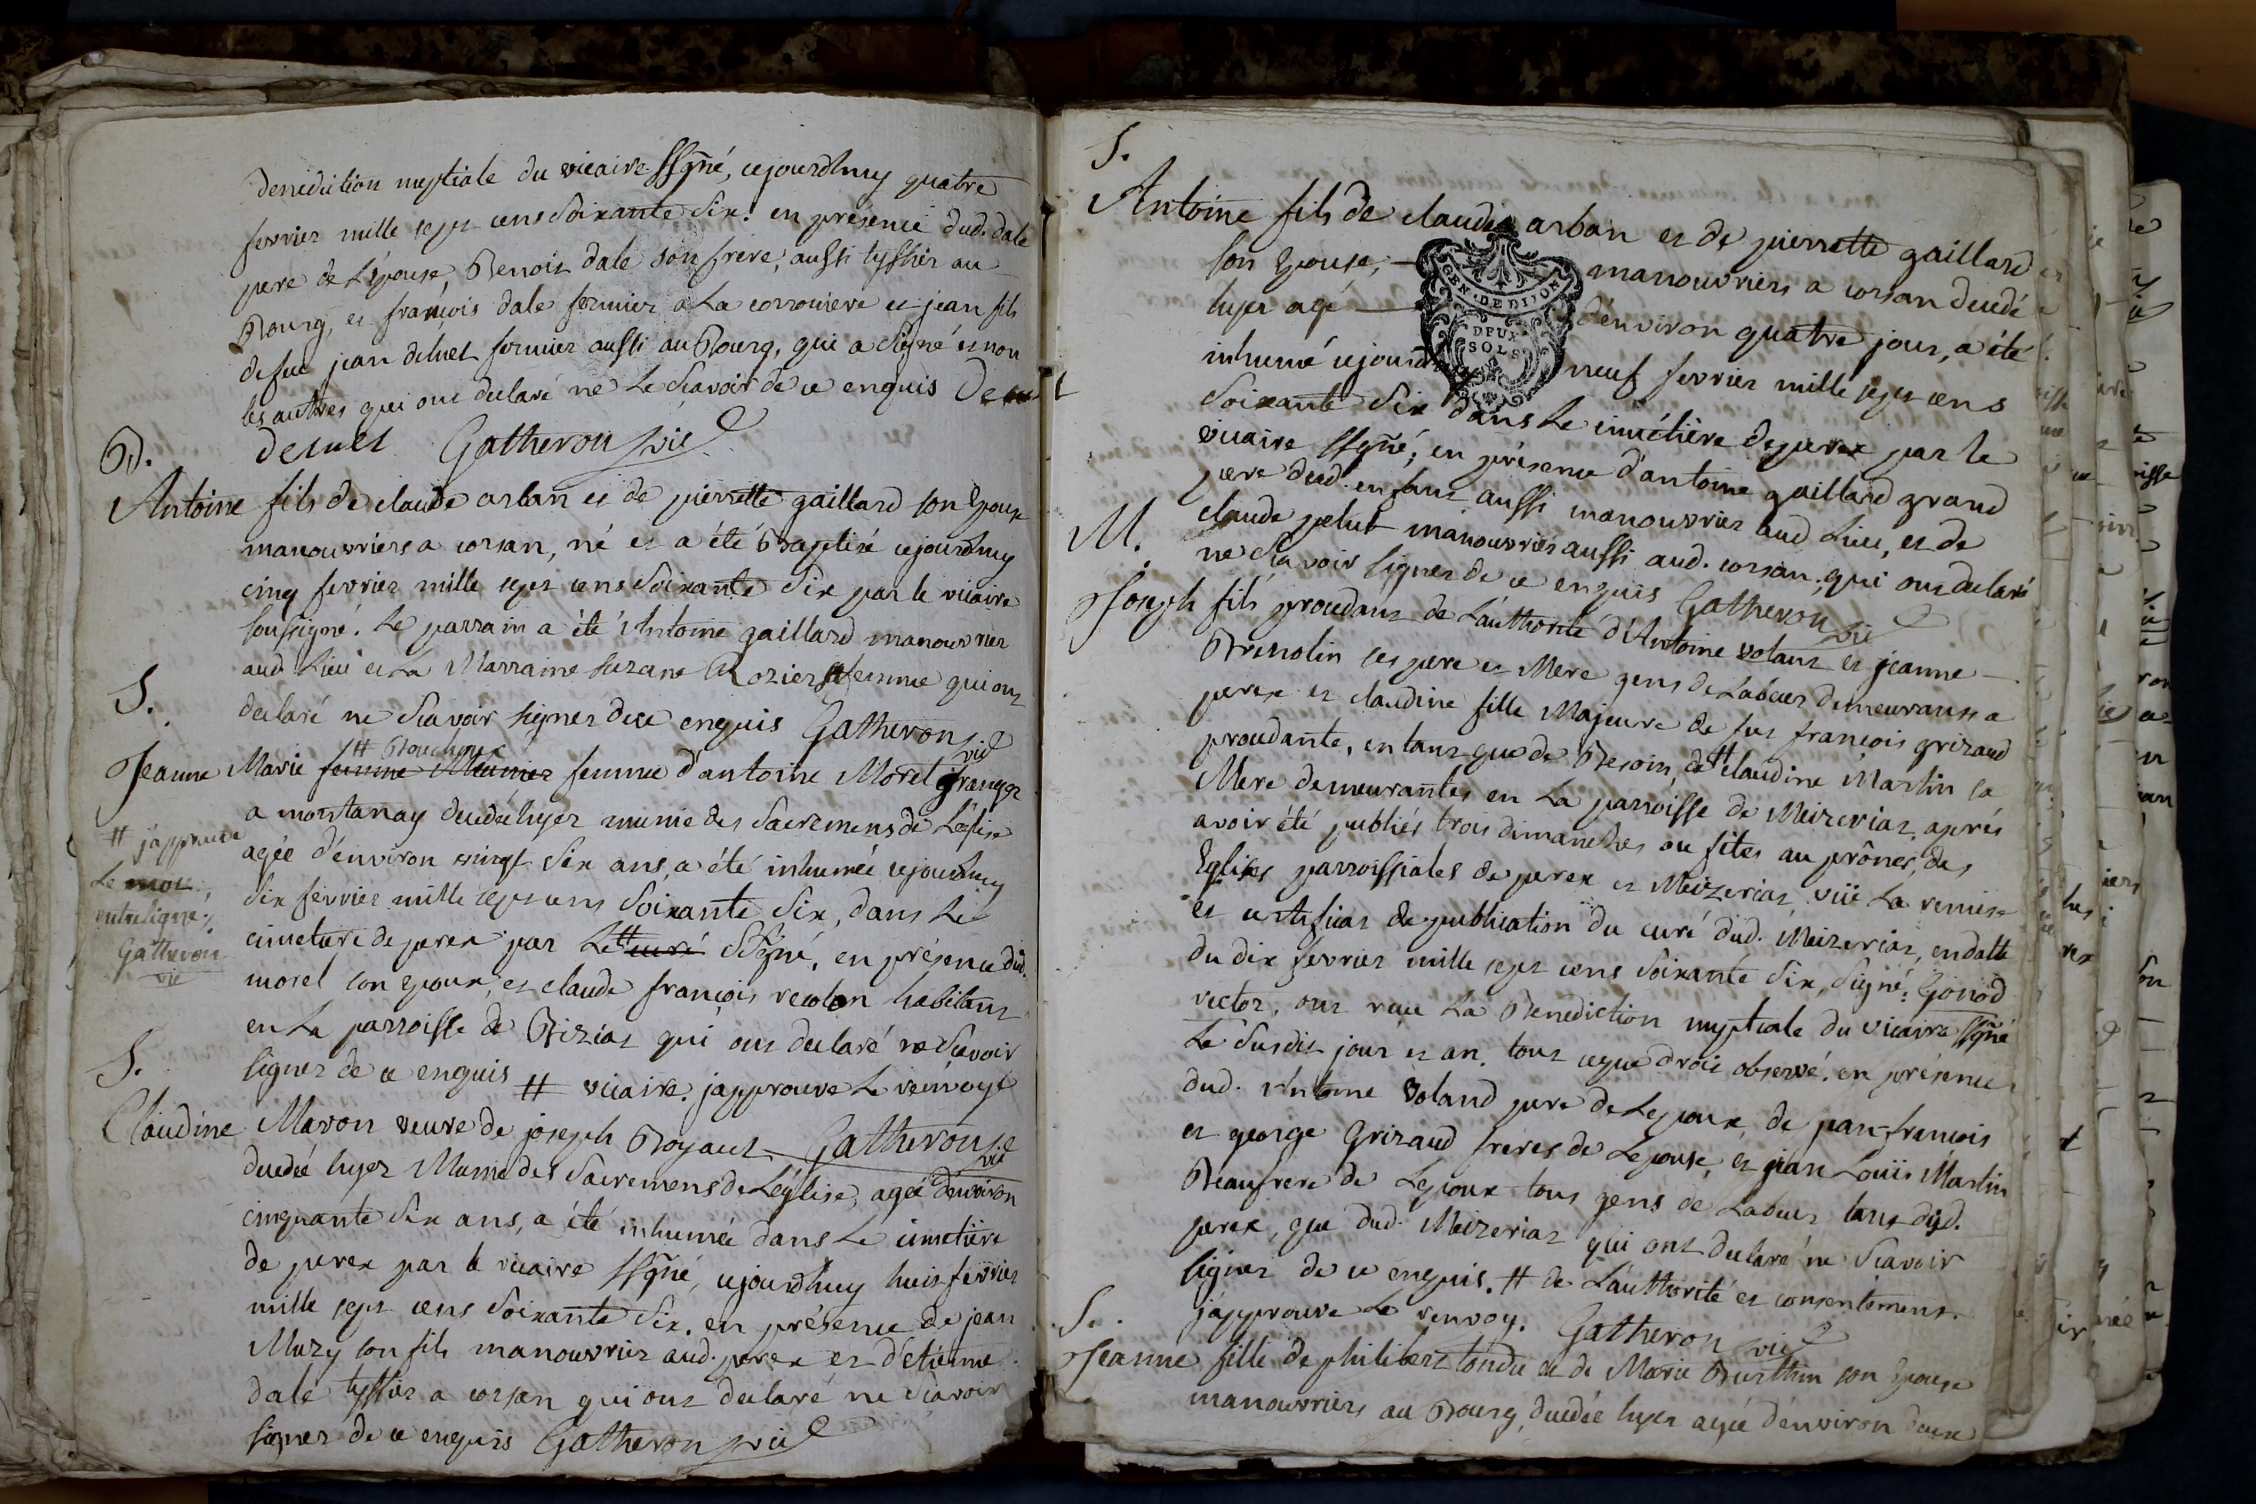 benediction nuptiale du vicaire ssgné, cejourdhuy quatre
fevrier mille sept cens Soixante Six. en présence dud. dale
pere de L'épouse, Benoit dale son frere, aussi tyssier au
Bourg, et francois dale fermier a La corroniere et jean fils
de feu jean deluel fermier aussi au Bourg, qui a signé et non
les autres qui ont declaré ne Le Scavoir de ce enquis
Deluel Gatheron vic
B.
Antoine fils de claude arban et de pierrette gaillard son Epouse
manouvriers a corsan, né et a été Baptisé cejourdhuy
cinq fevrier mille sept cens Soixante Six par le vicaire
soussigné. Le parrain a été Antoine gaillard manouvrier
aud. Lieu et La Marraine Suzane Rozier femme qui ont
declaré ne Scavoir signer de ce enquis Gatheron vic
S.
# Bouchoux
Jeanne Marie femme Meunier femme d'antoine Morel granger
a montanay decedée hyer munie des Sacremens de L'église
agée d'énviron vingt Six ans, a été inhumée cejourdhuy
# japprouve
Le mot
entreligné.
Gatheron
vic
Six fevrier mille sept cens Soixante Six, dans Le
cimetiere de perex par Le # curé SSgné, en présence dud.
morel son epoux, et claude francois recolon habitant
en La parroisse de Biziat qui ont declaré ne Scavoir
signer de ce enquis # vicaire. japprouve Le renvoye
S.
Gatheron vic
Claudine Mavon veuve de joseph Boyaux
decedée hyer Munie des Sacremens de L'église, agée d'énviron
cinquante Six ans, a été inhumée dans Le cimetiere
de perex par le vicaire ssgné, cejourdhuy huit fevrier
mille sept cens Soixante Six. en présence de jean
Muzy son fils manouvrier aud. perex et d'etienne
dale tyssier a corsan qui ont declaré ne Scavoir
signer de ce enquis Gatheron vic
S.
Antoine fils de claude arban et de pierrette gaillard
son Epouse, manouvriers a corsan decedé
hyer agé d'énviron quatre jours, a été
inhumé cejourdhuy neuf fevrier mille sept cens
GEN. DE DIJON
DEUX
SOLS
Soixante Six dans Le cimetière de perex par le
vicaire ssgné, en présence d'antoine gaillard grand
pere dud. enfant aussi manouvrier aud Lieu, et de
claude pelut manouvrier aussi aud. corsan, qui ont declaré
ne Scavoir signer de ce enquis Gatheron vic
M.
Joseph fils procedant de L'authorité d'Antoine volant et jeanne
Bremolin ses pere et Mere gens de Labeur demeurants a
perex et claudine fille Majeure de feu francois grizaud
procedante, en tant que de Besoin, de # claudine Martin sa
Mere demeurantes en La parroisse de Meizeriat, aprés
avoir été publiés trois dimanches ou fêtes au prônes, des
Eglises parroissiales de perex et Meizeriat, vüe La remise
et certificat de publication du curé dud. Meizeriat, en datte
du dix fevrier mille sept cens Soixante Six, Signé: Gonod
rector, ont receu La Benediction nuptiale du vicaire ssgné
Le Susdit jour et an. tout ce que droit observé. en présence
dud. Antoine Voland pere de Lepoux, de jean-francois
et george Grizaud freres de Lepouse, et jean Louis Martin
Beaufrere de Lepoux tous gens de Labeur tant dud.
perex, que dud. Meizeriat qui ont declaré ne Scavoir
signer de ce enquis. # de L'authorité et consentement.
j'approuve Le renvoy. Gatheron vic
S.
Jeanne fille de philibert tondu et de Marie Burthin son Epouse
manouvriers au Bourg, decedée hyer agée d'énviron deux